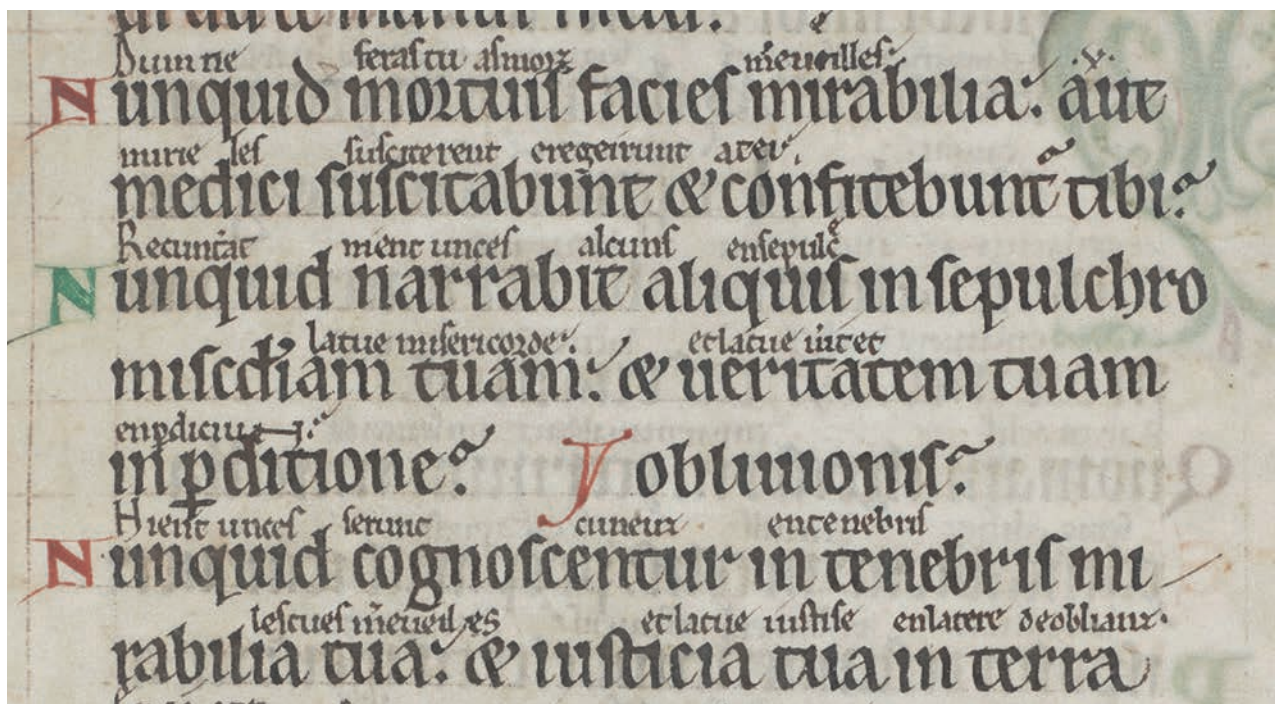 Dunne feras tu as morz mẽrueilles:
Nunquid mortuis facies mirabilia: aut
mirie les susciterent e regeirunt a tei.
medici suscitabunt & confitebuntˀ tibi?
Recuntat ment unces alcuns en sepulc̄
Nunquid narrabit aliquis in sepulchro
la tue misericorde: et la tue u̾itet
misc̄diam tuam: & ueritatem tuam
en ꝑdiciun:
in ꝑditione? obliuionis?
Hient unces serunt cuneux en tenebris
Nunquid cognoscentur in tenebris mi
les tues m̾eueilles et la tue iustise en la tere de oblianz.
rabilia tua: & iusticia tua in terra